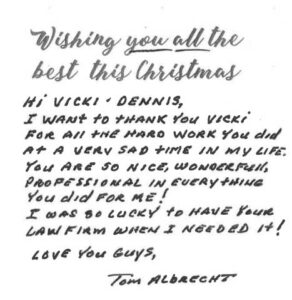 Wishing you all the
best this Christmas
Hi VICKI - DENNIS,
I WANT TO THANK YOU VICKI
FOR All tHE HARD WORK YOU did
AT A VERY SAD TIME IN MY LIFE.
YOU ARE SO NICE, WONDERFULL,
PROFESSIONAL IN EVERYTHING
YOU did FOR ME!
I WAS SO LUCKY TO HAVE YOUR
LAW FIRM WHEN I NEEDED IT!
LOVE YOU GUYS,
TOM ALBRECHT